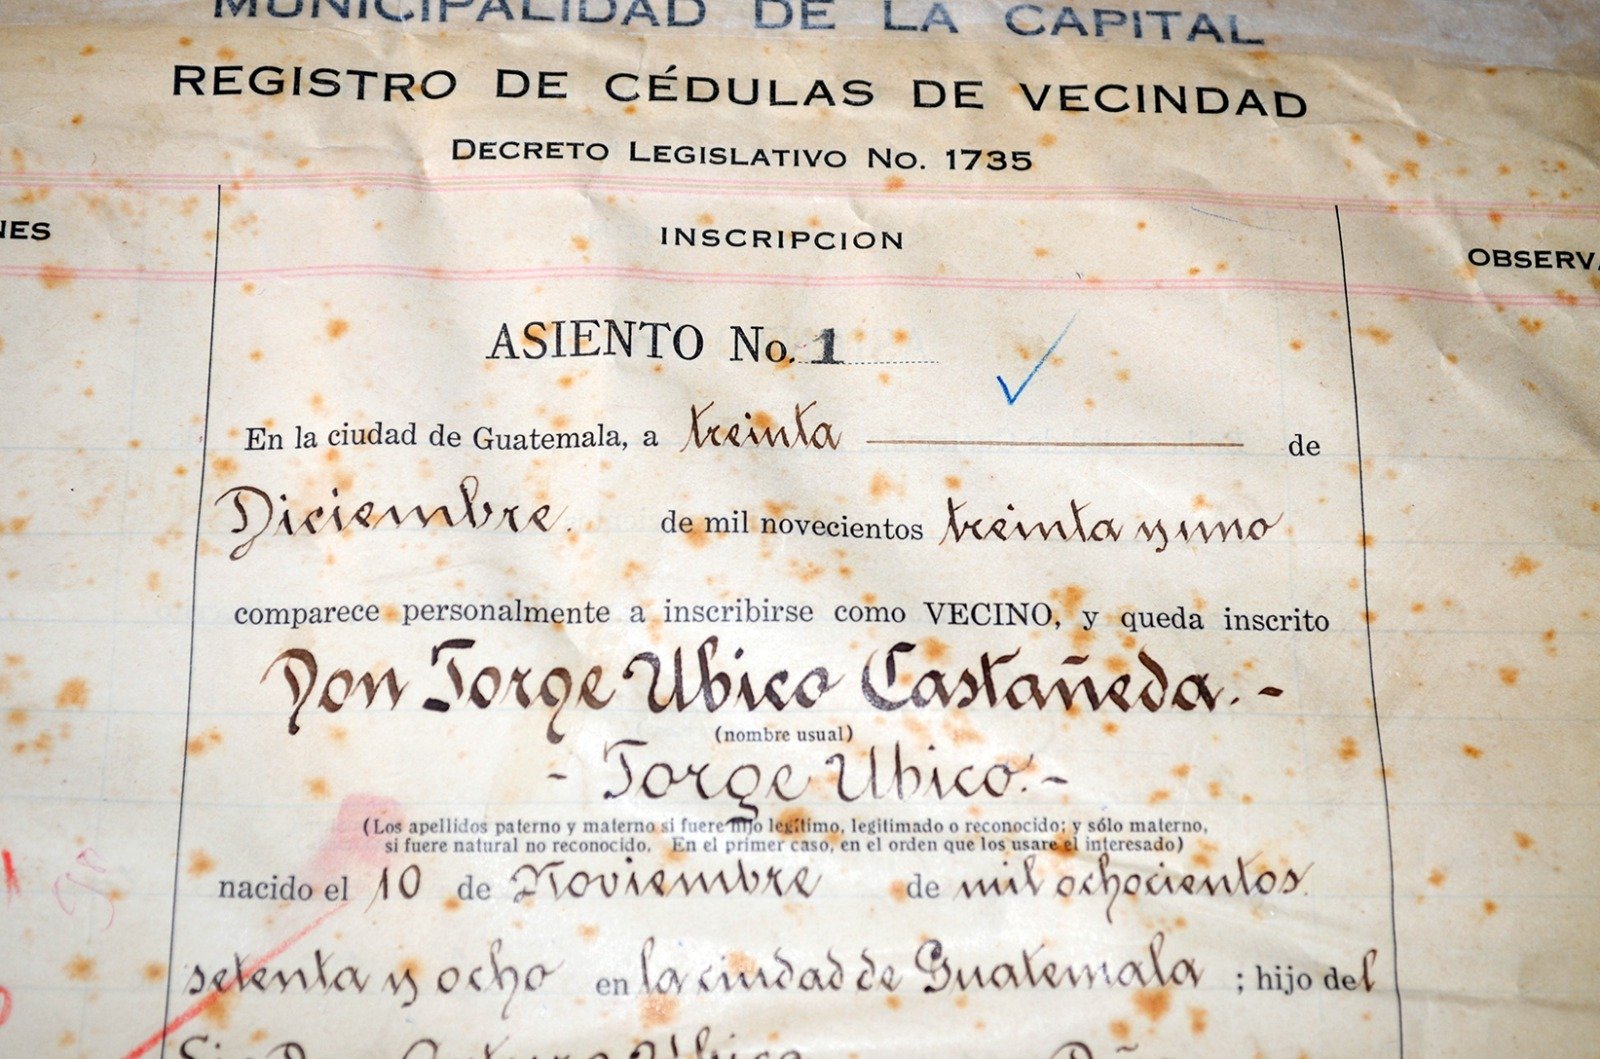 MUNICIPALIDAD DE LA CAPITAL
REGISTRO DE CÉDULAS DE VECINDAD
DECRETO LEGISLATIVO No. 1735
NES
INSCRIPCION
OBSERVA
ASIENTO No. 1
En la ciudad de Guatemala, a treinta de
Diciembre. de mil novecientos treinta y uno
comparece personalmente a inscribirse como VECINO, y queda inscrito
Don Jorge Ubico Castañeda.-
(nombre usual)
- Jorge Ubico.-
(Los apellidos paterno y materno si fuere hijo legítimo, legitimado o reconocido; y sólo materno,
si fuere natural no reconocido. En el primer caso, en el orden que los usare el interesado)
nacido el 10 de Noviembre de mil ochocientos
setenta y ocho en la ciudad de Guatemala ; hijo del
Arturo Ubico